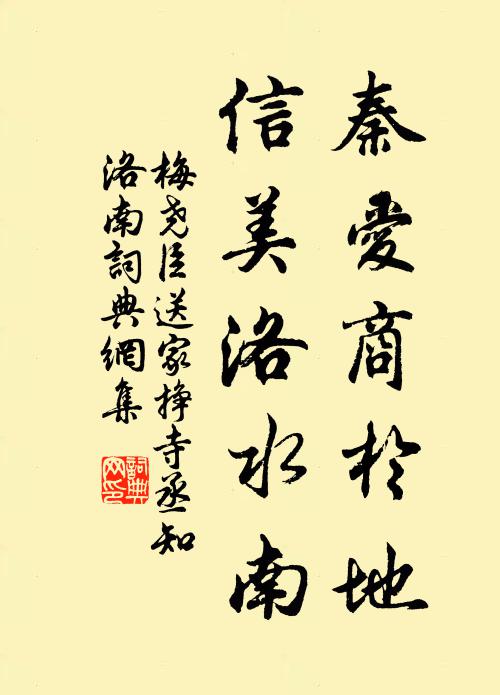 秦愛商於地
信美洛水南
梅堯臣送家挣寺丞知
洛南詞典網集
詞典
网印